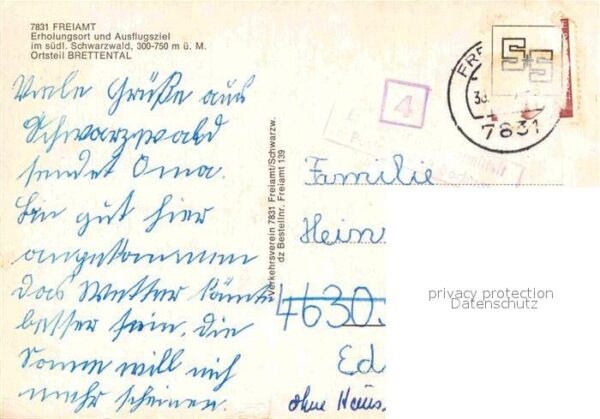 7831 FREIAMT
Erholungsort und Ausflugsziel
im südl. Schwarzwald, 300-750 m ü. M.
Ortsteil BRETTENTAL
Viele Grüße aus
Schwarzwald
sendet Oma.
Bin gut hier
angekommen
das Wetter könnte
besser sein. die
Sonne will nich
mehr scheinen.
Verkehrsverein 7831 Freiamt/Schwarzw.
dz Bestellnr. Freiamt 139
4
7831
Familie
Hein
4630.
Ed
ohne Haus.
privacy protection
Datenschutz